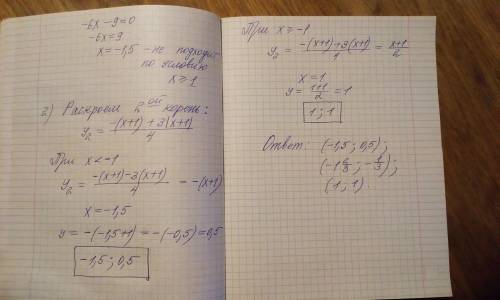 -6x - 9 = 0
-6x = 9
x = -1,5 - не подходит
по условию
x ≥ -1
2) Раскроем 2ой корень:
y₂ = (-(x+1) + 3(x+1))/4
При x < -1
y₂ = (-(x+1) - 3(x+1))/4 = -(x+1)
x = -1,5
y = -(-1,5+1) = -(-0,5) = 0,5
-1,5 ; 0,5
При x ≥ -1
y₂ = (-(x+1) + 3(x+1))/4 = (x+1)/2
x = 1
y = (1+1)/2 = 1
1 ; 1
Ответ: (-1,5 ; 0,5) ;
(1 ; 1)